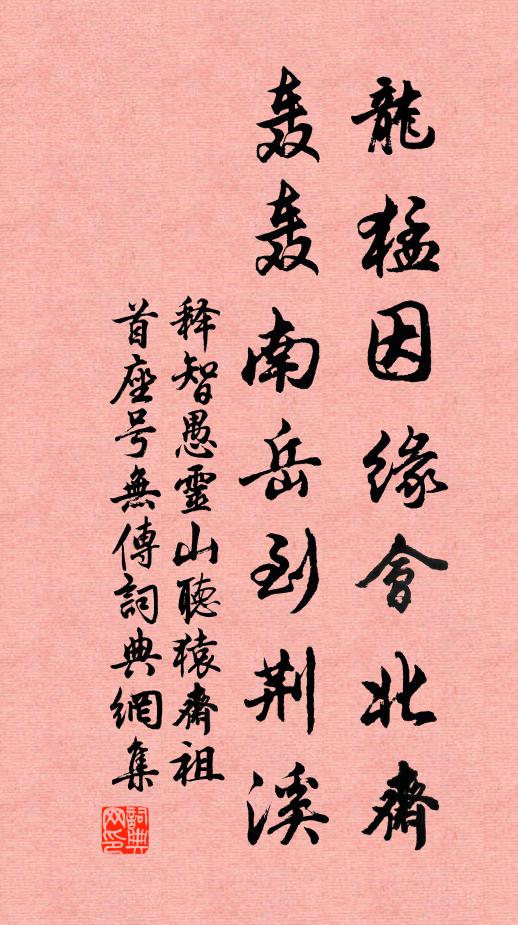 龍猛因緣會北齋
轟轟南岳到荆溪
释智愚靈山聽猿齋祖
首座号無傳詞典網集
詞典网印